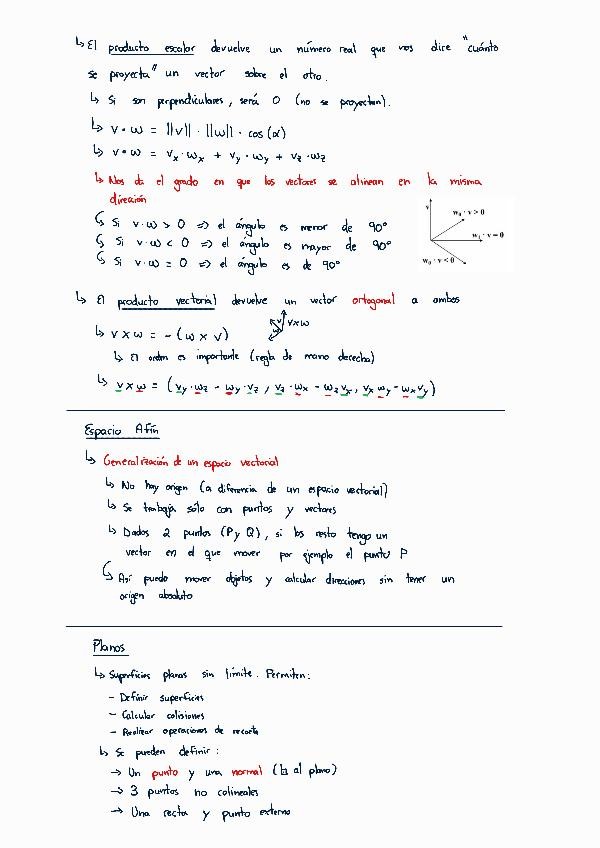 ↳ El producto escalar devuelve un número real que nos dice "cuánto
se proyecta" un vector sobre el otro.
↳ Si son perpendiculares, será 0 (no se proyectan).
↳ v • w = ||v|| · ||w|| · cos (α)
↳ v • w = vx · wx + vy · wy + vz · wz
↳ Nos da el grado en que los vectores se alinean en la misma
dirección
↳ Si v·w > 0 => el ángulo es menor de 90°
↳ Si v·w < 0 => el ángulo es mayor de 90°
↳ Si v·w = 0 => el ángulo es de 90°
v
w₀ · v > 0
w₁ · v = 0
w₀ · v < 0
↳ El producto vectorial devuelve un vector ortogonal a ambos
↳ v x w = - (w x v)
v x w
↳ El orden es importante (regla de mano derecha)
↳ v x w = (vy · wz - wy · vz , vz · wx - wz vx , vx wy - wx vy)
Espacio Afín
↳ Generalización de un espacio vectorial
↳ No hay origen (a diferencia de un espacio vectorial)
↳ Se trabaja sólo con puntos y vectores
↳ Dados 2 puntos (P y Q), si los resto tengo un
vector en el que mover por ejemplo el punto P
↳ Así puedo mover objetos y calcular direcciones sin tener un
origen absoluto
Planos
↳ Superficies planas sin límite. Permiten:
- Definir superficies
- Calcular colisiones
- Realizar operaciones de recorte
↳ Se pueden definir:
→ Un punto y una normal (⊥ al plano)
→ 3 puntos no colineales
→ Una recta y punto externo